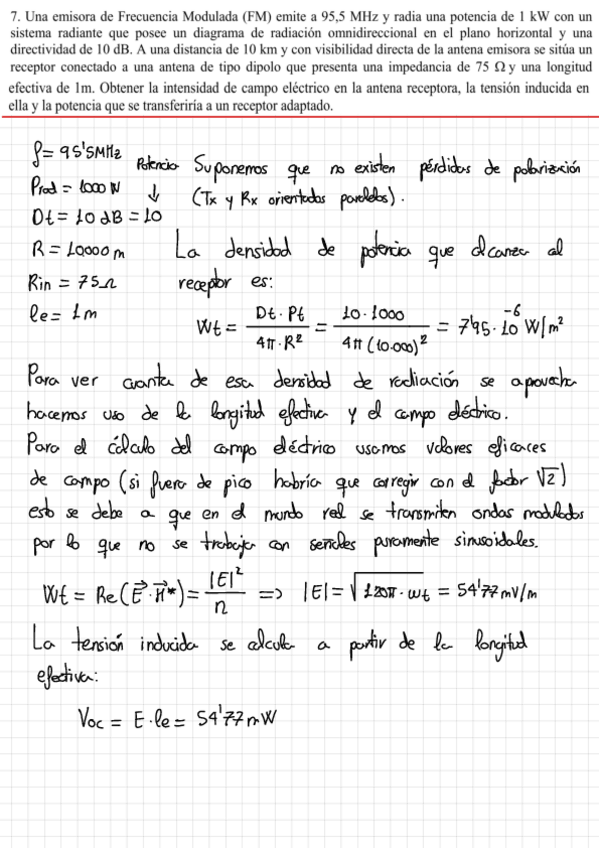 7. Una emisora de Frecuencia Modulada (FM) emite a 95,5 MHz y radia una potencia de 1 kW con un
sistema radiante que posee un diagrama de radiación omnidireccional en el plano horizontal y una
directividad de 10 dB. A una distancia de 10 km y con visibilidad directa de la antena emisora se sitúa un
receptor conectado a una antena de tipo dipolo que presenta una impedancia de 75 Ω y una longitud
efectiva de 1m. Obtener la intensidad de campo eléctrico en la antena receptora, la tensión inducida en
ella y la potencia que se transferiría a un receptor adaptado.
f = 95'5MHz
Prad = 1000 W
Potencia ↓
Dt = 10 dB = 10
R = 10000 m
Rin = 75Ω
le = 1m
Suponemos que no existen pérdidas de polarización
(Tx y Rx orientados paralelos).
La densidad de potencia que alcanza al
receptor es:
Wt = Dt · Pt / 4π · R² = 10 · 1000 / 4π (10.000)² = 7'95 · 10⁻⁶ W/m²
Para ver cuanta de esa densidad de radiación se aprovecha
hacemos uso de la longitud efectiva y el campo eléctrico.
Para el cálculo del campo eléctrico usamos valores eficaces
de campo (si fuera de pico habría que corregir con el factor √2)
esto se debe a que en el mundo real se transmiten ondas moduladas
por lo que no se trabaja con señales puramente sinusoidales.
Wt = Re(E⃗ · H⃗*) = |E|² / n => |E| = √120π · Wt = 54'77 mV/m
La tensión inducida se calcula a partir de la longitud
efectiva:
Voc = E · le = 54'77 mW